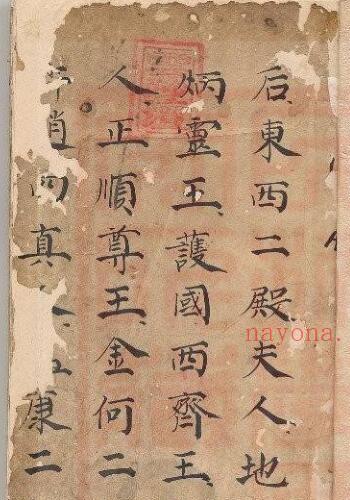 后、東西二殿夫人、地
炳靈王、護國西齊王、
人、正順尊王、金何二
四真、康二
nayona.